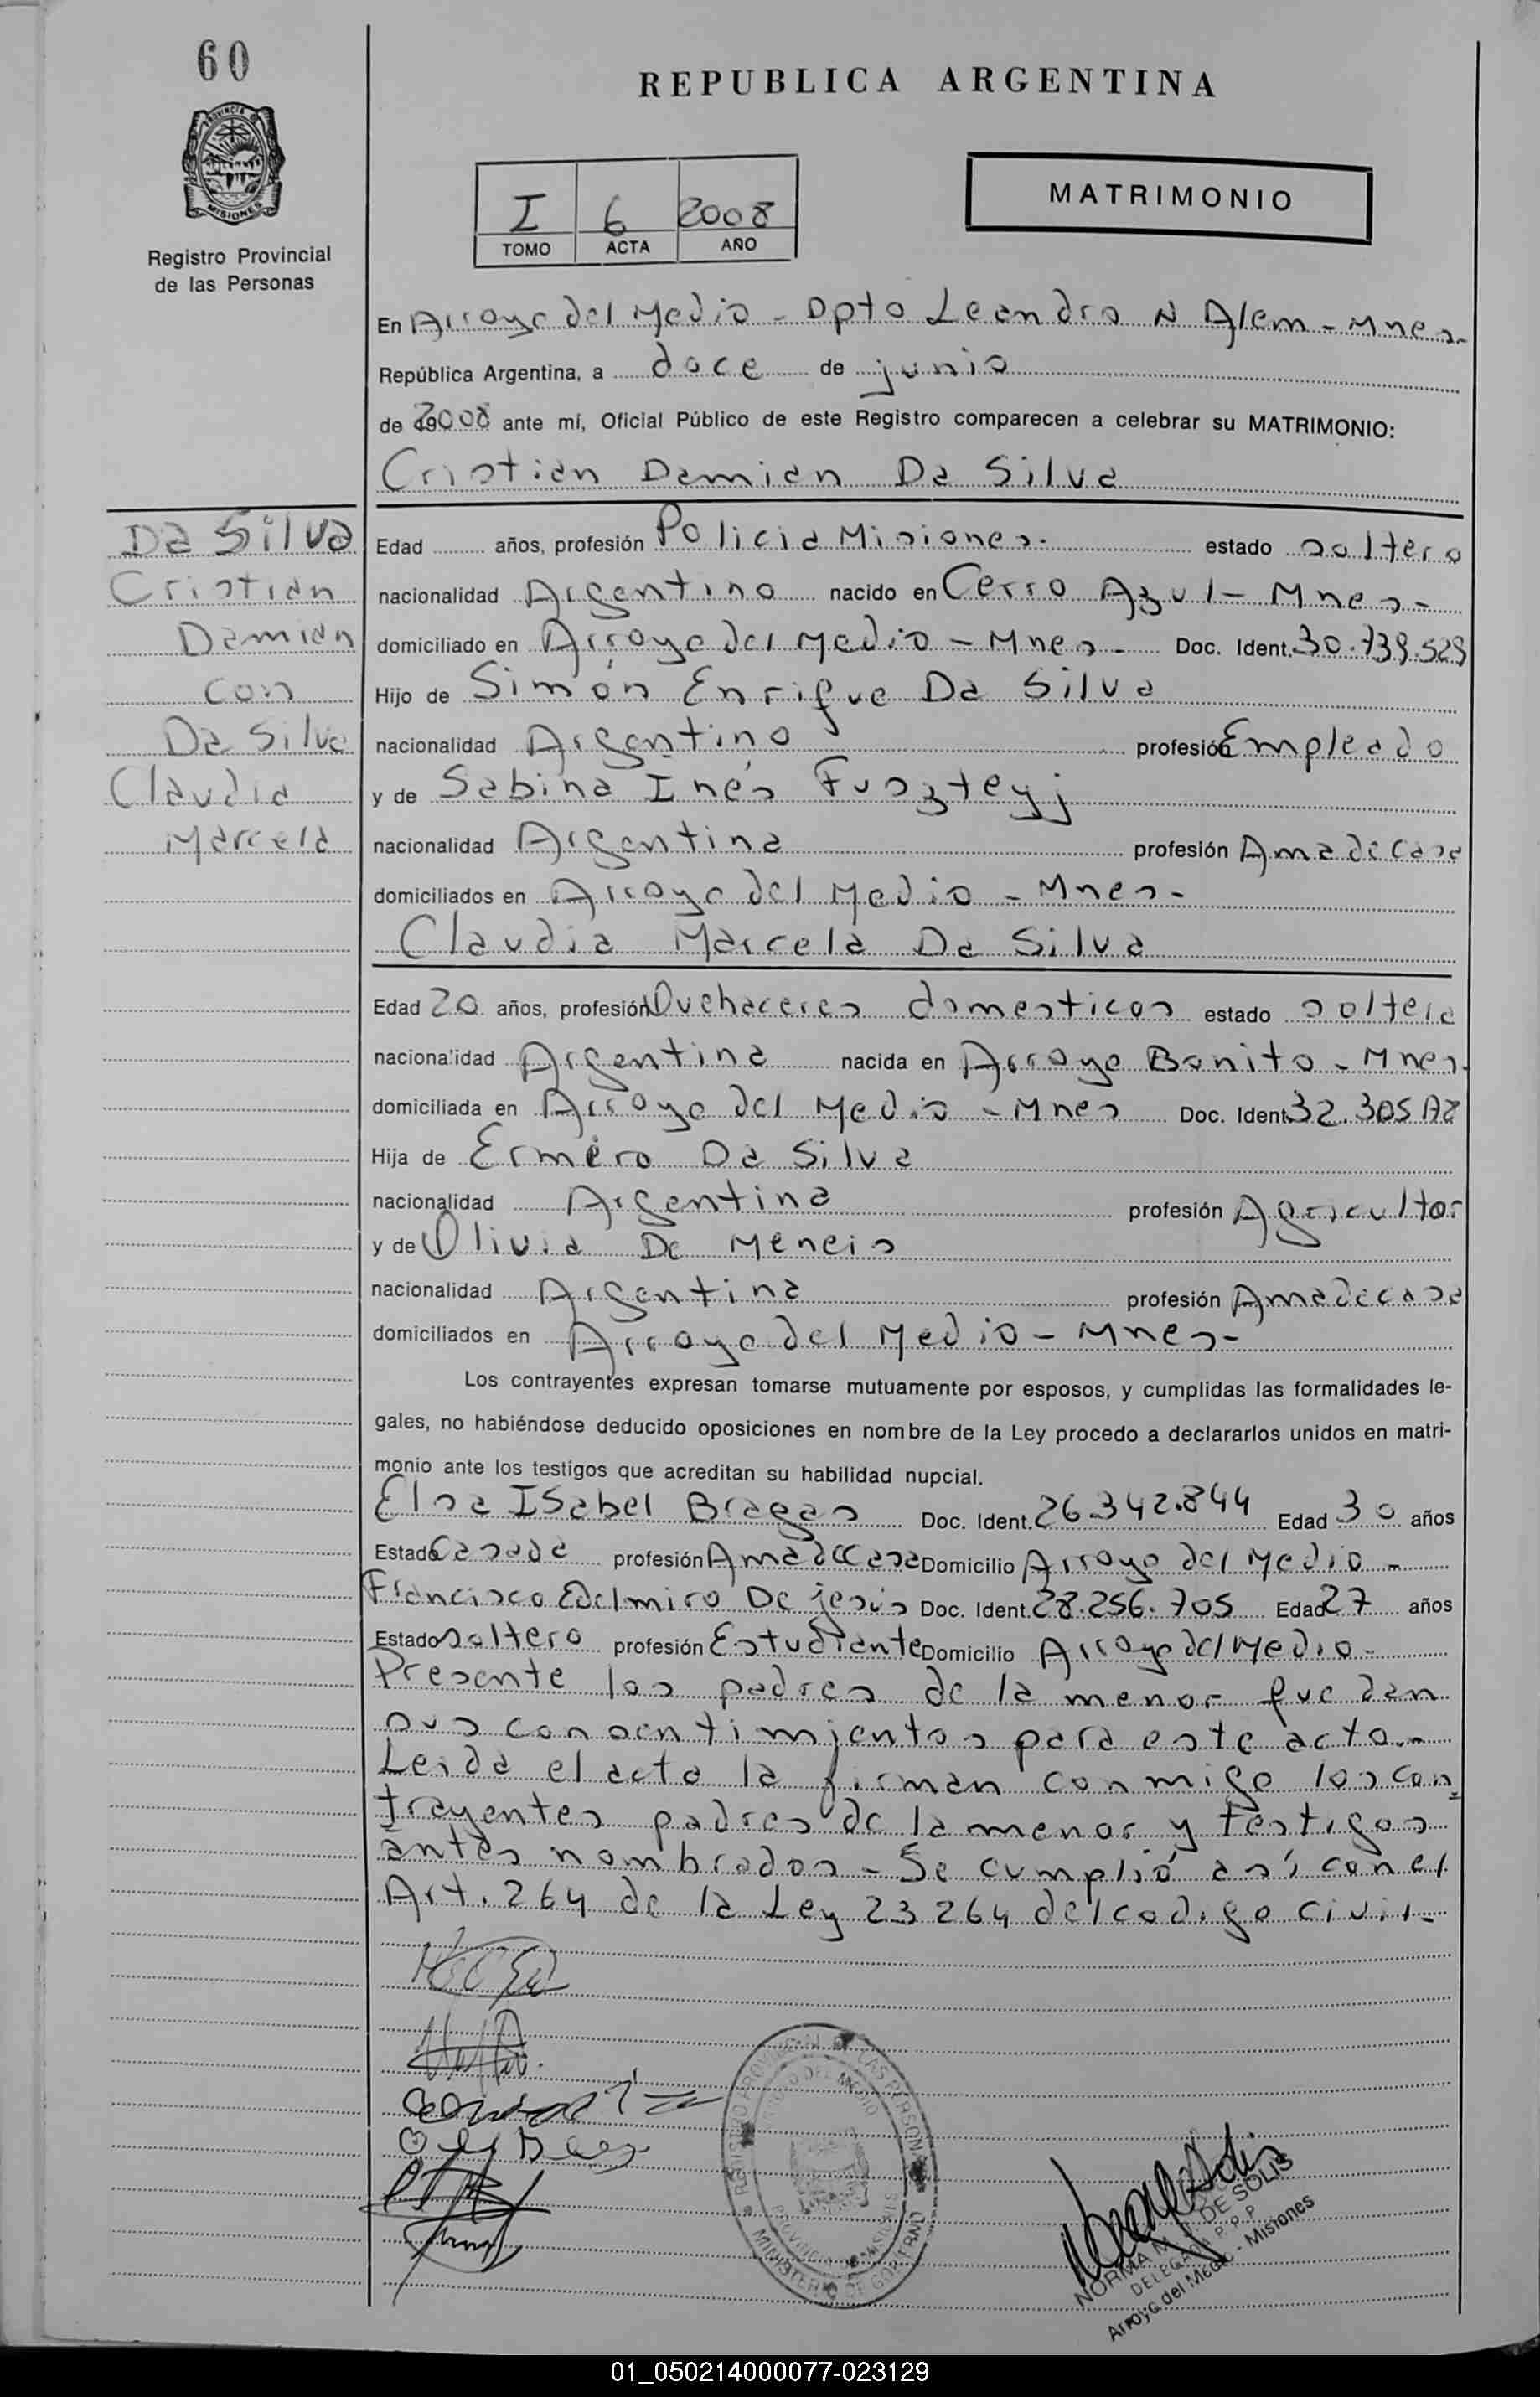 60
REPUBLICA ARGENTINA
PROVINCIA DE
MISIONES
Registro Provincial
de las Personas
I 6 2008
TOMO ACTA AÑO
MATRIMONIO
En Arroyo del Medio - Dpto Leandro N Alem - Mnes -
República Argentina, a doce de junio
de 2008 ante mí, Oficial Público de este Registro comparecen a celebrar su MATRIMONIO:
Cristian Damian Da Silva
Da Silva
Cristian
Damian
con
Da Silva
Claudia
Marcela
Edad años, profesión Policia Misiones. estado soltero
nacionalidad Argentino nacido en Cerro Azul - Mnes -
domiciliado en Arroyo del Medio - Mnes - Doc. Ident. 30.739.529
Hijo de Simón Enrique Da Silva
nacionalidad Argentino profesión Empleado
y de Sabina Inés Fuszteyj
nacionalidad Argentina profesión Ama de casa
domiciliados en Arroyo del Medio - Mnes -
Claudia Marcela Da Silva
Edad 20 años, profesión Quehaceres domesticos estado soltera
nacionalidad Argentina nacida en Arroyo Bonito - Mnes -
domiciliada en Arroyo del Medio - Mnes Doc. Ident.
Hija de Ermero Da Silva
nacionalidad Argentina profesión Agricultor
y de Olivia De Meneis
nacionalidad Argentina profesión Ama de casa
domiciliados en Arroyo del Medio - Mnes -
Los contrayentes expresan tomarse mutuamente por esposos, y cumplidas las formalidades le-
gales, no habiéndose deducido oposiciones en nombre de la Ley procedo a declararlos unidos en matri-
monio ante los testigos que acreditan su habilidad nupcial.
Elsa ISabel Bragas Doc. Ident. 26.342.844 Edad 30 años
Estado Casada profesión Ama de casa Domicilio Arroyo del Medio -
Francisco Edelmiro De jesús Doc. Ident. 28.256.705 Edad 27 años
Estado soltero profesión Estudiante Domicilio Arroyo del Medio -
Presente los padres de la menor que dan
sus consentimientos para este acto.-
Leida el acta la firman conmigo los con
trayentes padres de la menor y testigos
antes nombrados - Se cumplió así con el
Art. 264 de la Ley 23264 del codigo civil -
REGISTRO PROVINCIAL DE LAS PERSONAS
ARROYO DEL MEDIO
PROVINCIA DE MISIONES
MINISTERIO DE GOBIERNO
NORMA DE SOLIS
DELEGADA R.P.P.
Arroyo del Medio - Misiones
01_050214000077-023129